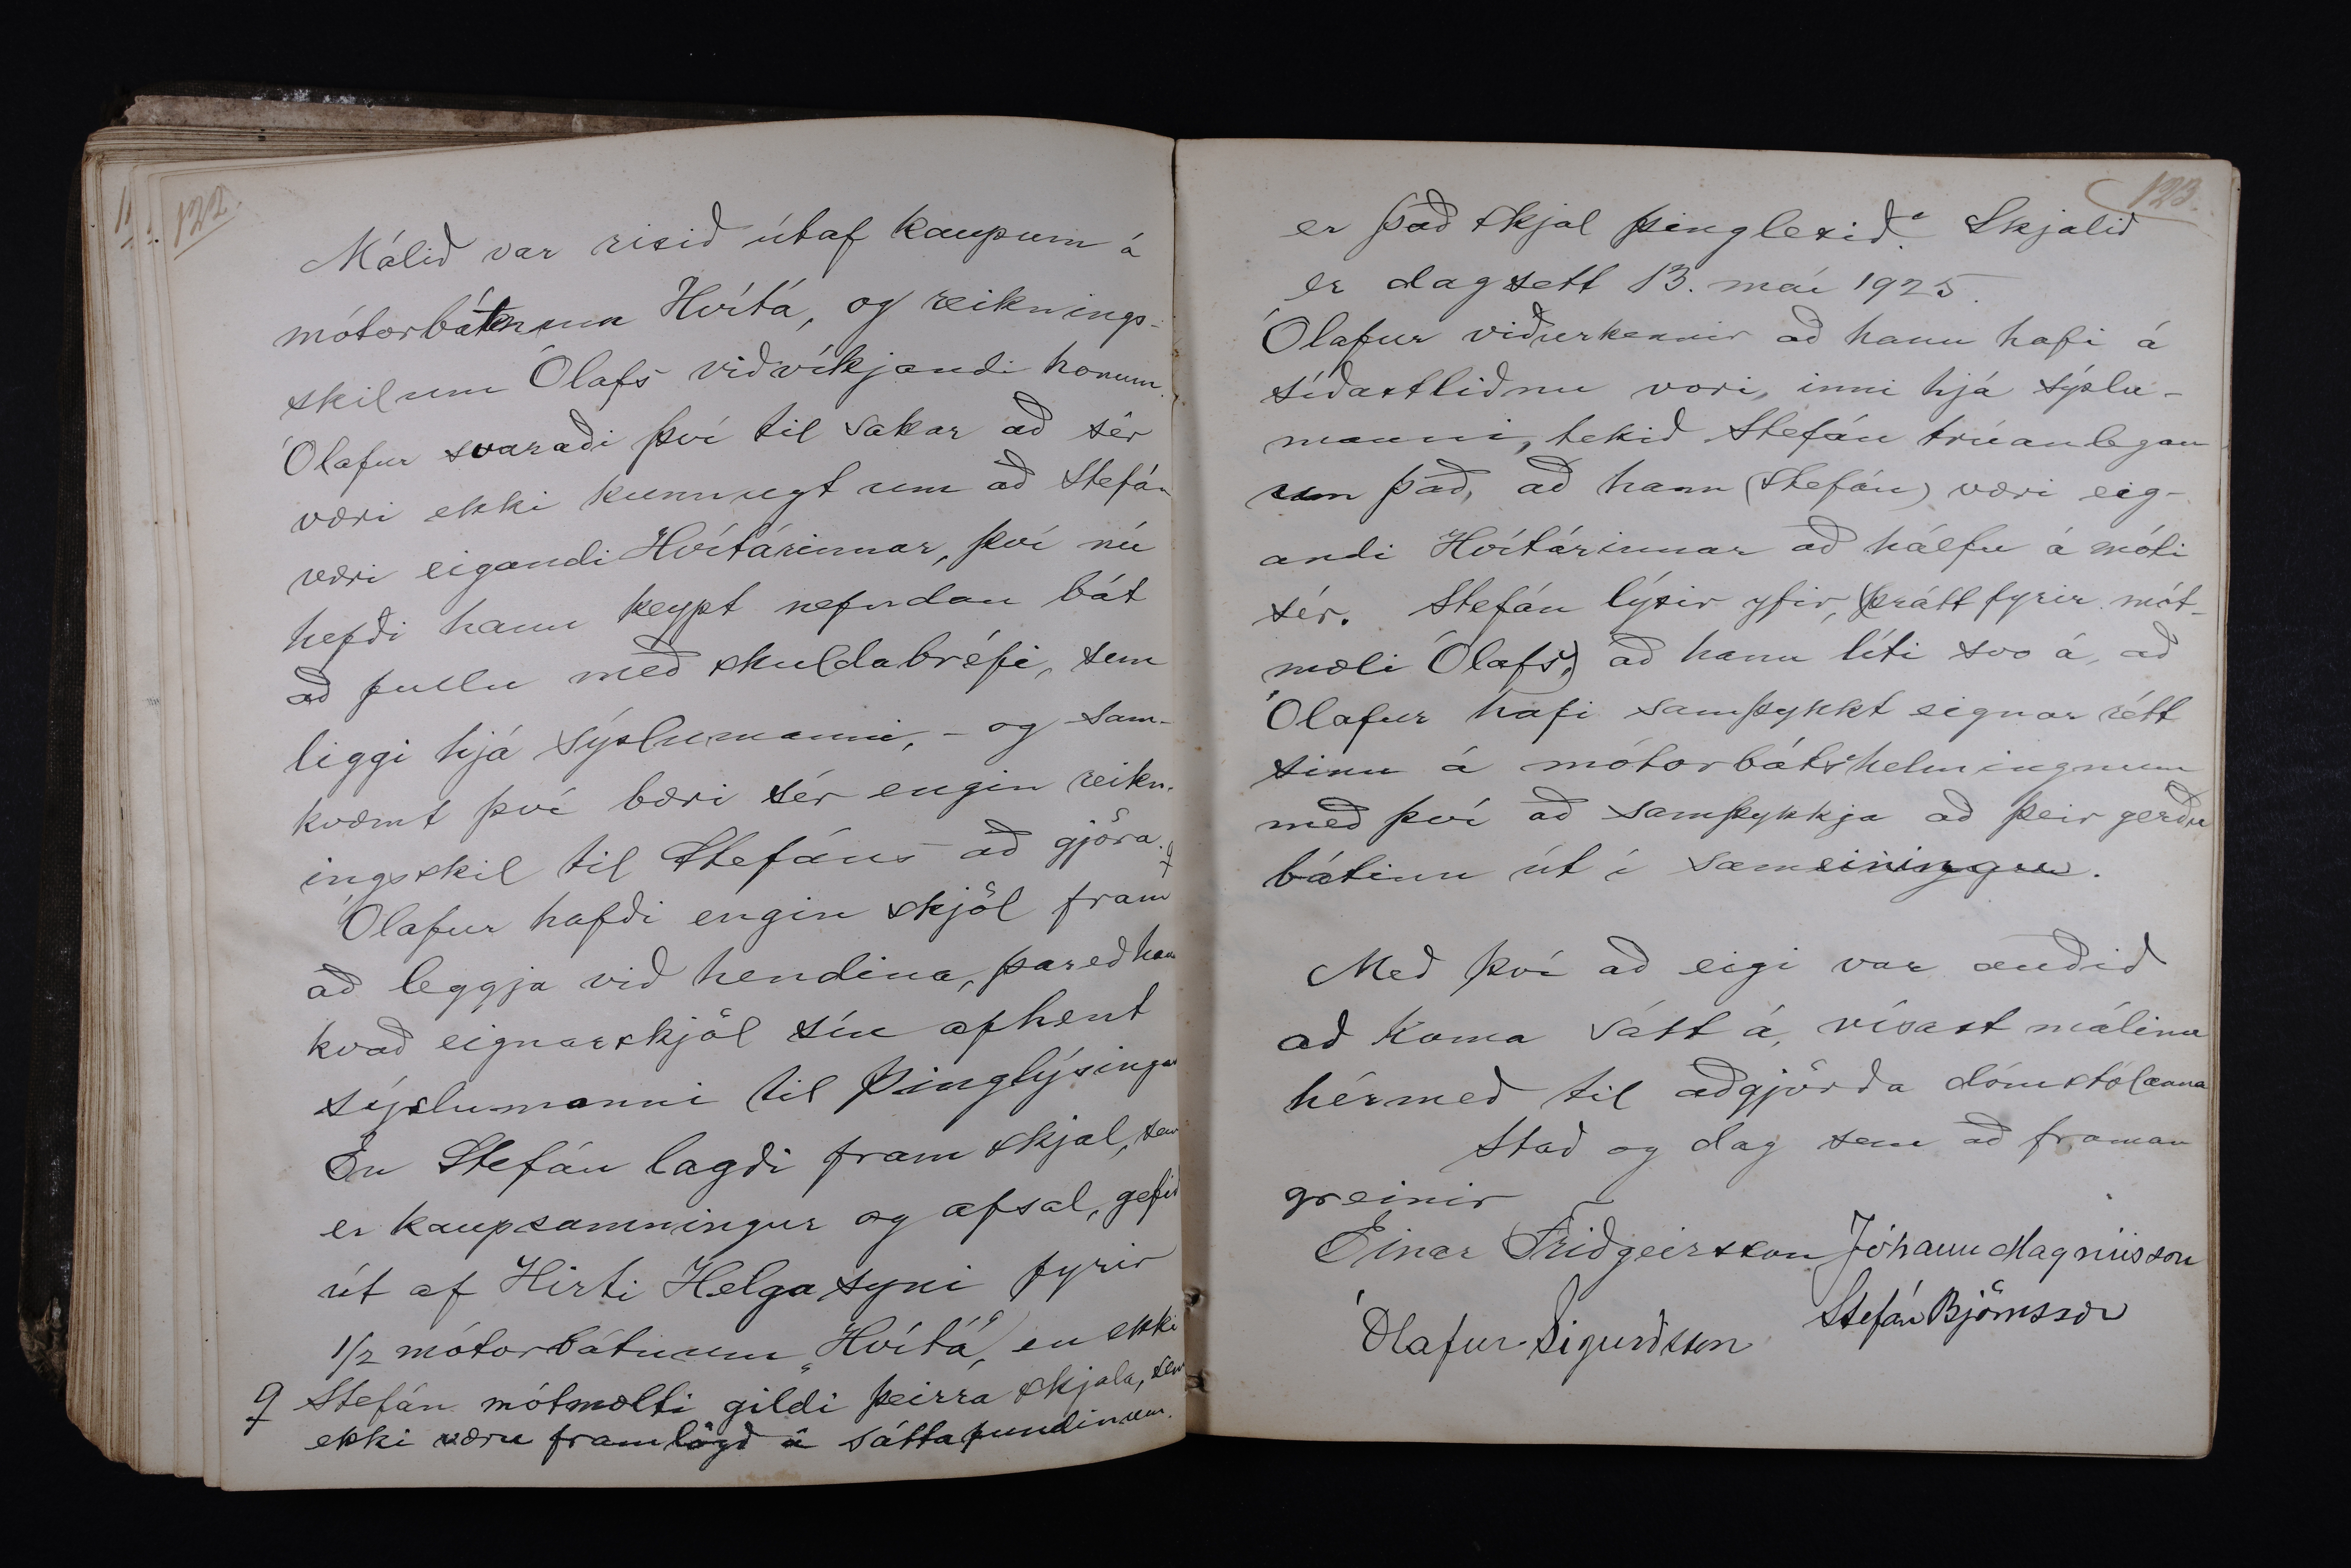 122.
Málið var risið útaf kaupum á
mótorbátnum Hvítá, og reiknings-
skilum Ólafs viðvíkjandi honum.
Ólafur svaraði því til sakar að sér
væri ekki kunnugt um að Stefán
væri eigandi Hvítárinnar, því nú
hefði hann keypt nefndan bát
að fullu með skuldabréfi, sem
liggi hjá sýslumanni, - og sam-
kvæmt því bæri sér engin reikn-
ingsskil til Stefáns að gjöra. ♀
Ólafur hafði engin skjöl fram
að leggja við hendina, þareð hann
kvað eignarskjöl sín afhent
sýslumanni til þinglýsingar
En Stefán lagði fram skjal, sem
er kaupsamningur og afsal, gefið
út af Hirti Helgasyni fyrir
1/2 mótorbátnum „Hvítá“, en ekki
♀ Stefán mótmælti gildi þeirra skjala, sem
ekki væru framlögð á sáttafundinum.
123.
er það skjal þinglesið. Skjalið
er dagsett 13. maí 1925.
Ólafur viðurkennir að hann hafi á
síðastliðnu vori, inni hjá sýslu-
manni, tekið Stefán trúanlegan
um það, að hann (Stefán) væri eig-
andi Hvítárinnar að hálfu á móti
sér. Stefán lýsir yfir, (þrátt fyrir mót-
mæli Ólafs,) að hann líti svo á, að
Ólafur hafi samþykkt eignar rétt
sinn á mótorbátshelmingnum
með því að samþykkja að þeir gerðu
bátinn út í sameiningu.
Með því að eigi var auðið
að koma sátt á, vísast málinu
hérmeð til aðgjörða dómstólanna
Stað og dag sem að framan
greinir
Einar Friðgeirsson Jóhann Magnússon
Ólafur Sigurðsson Stefán Björnsson